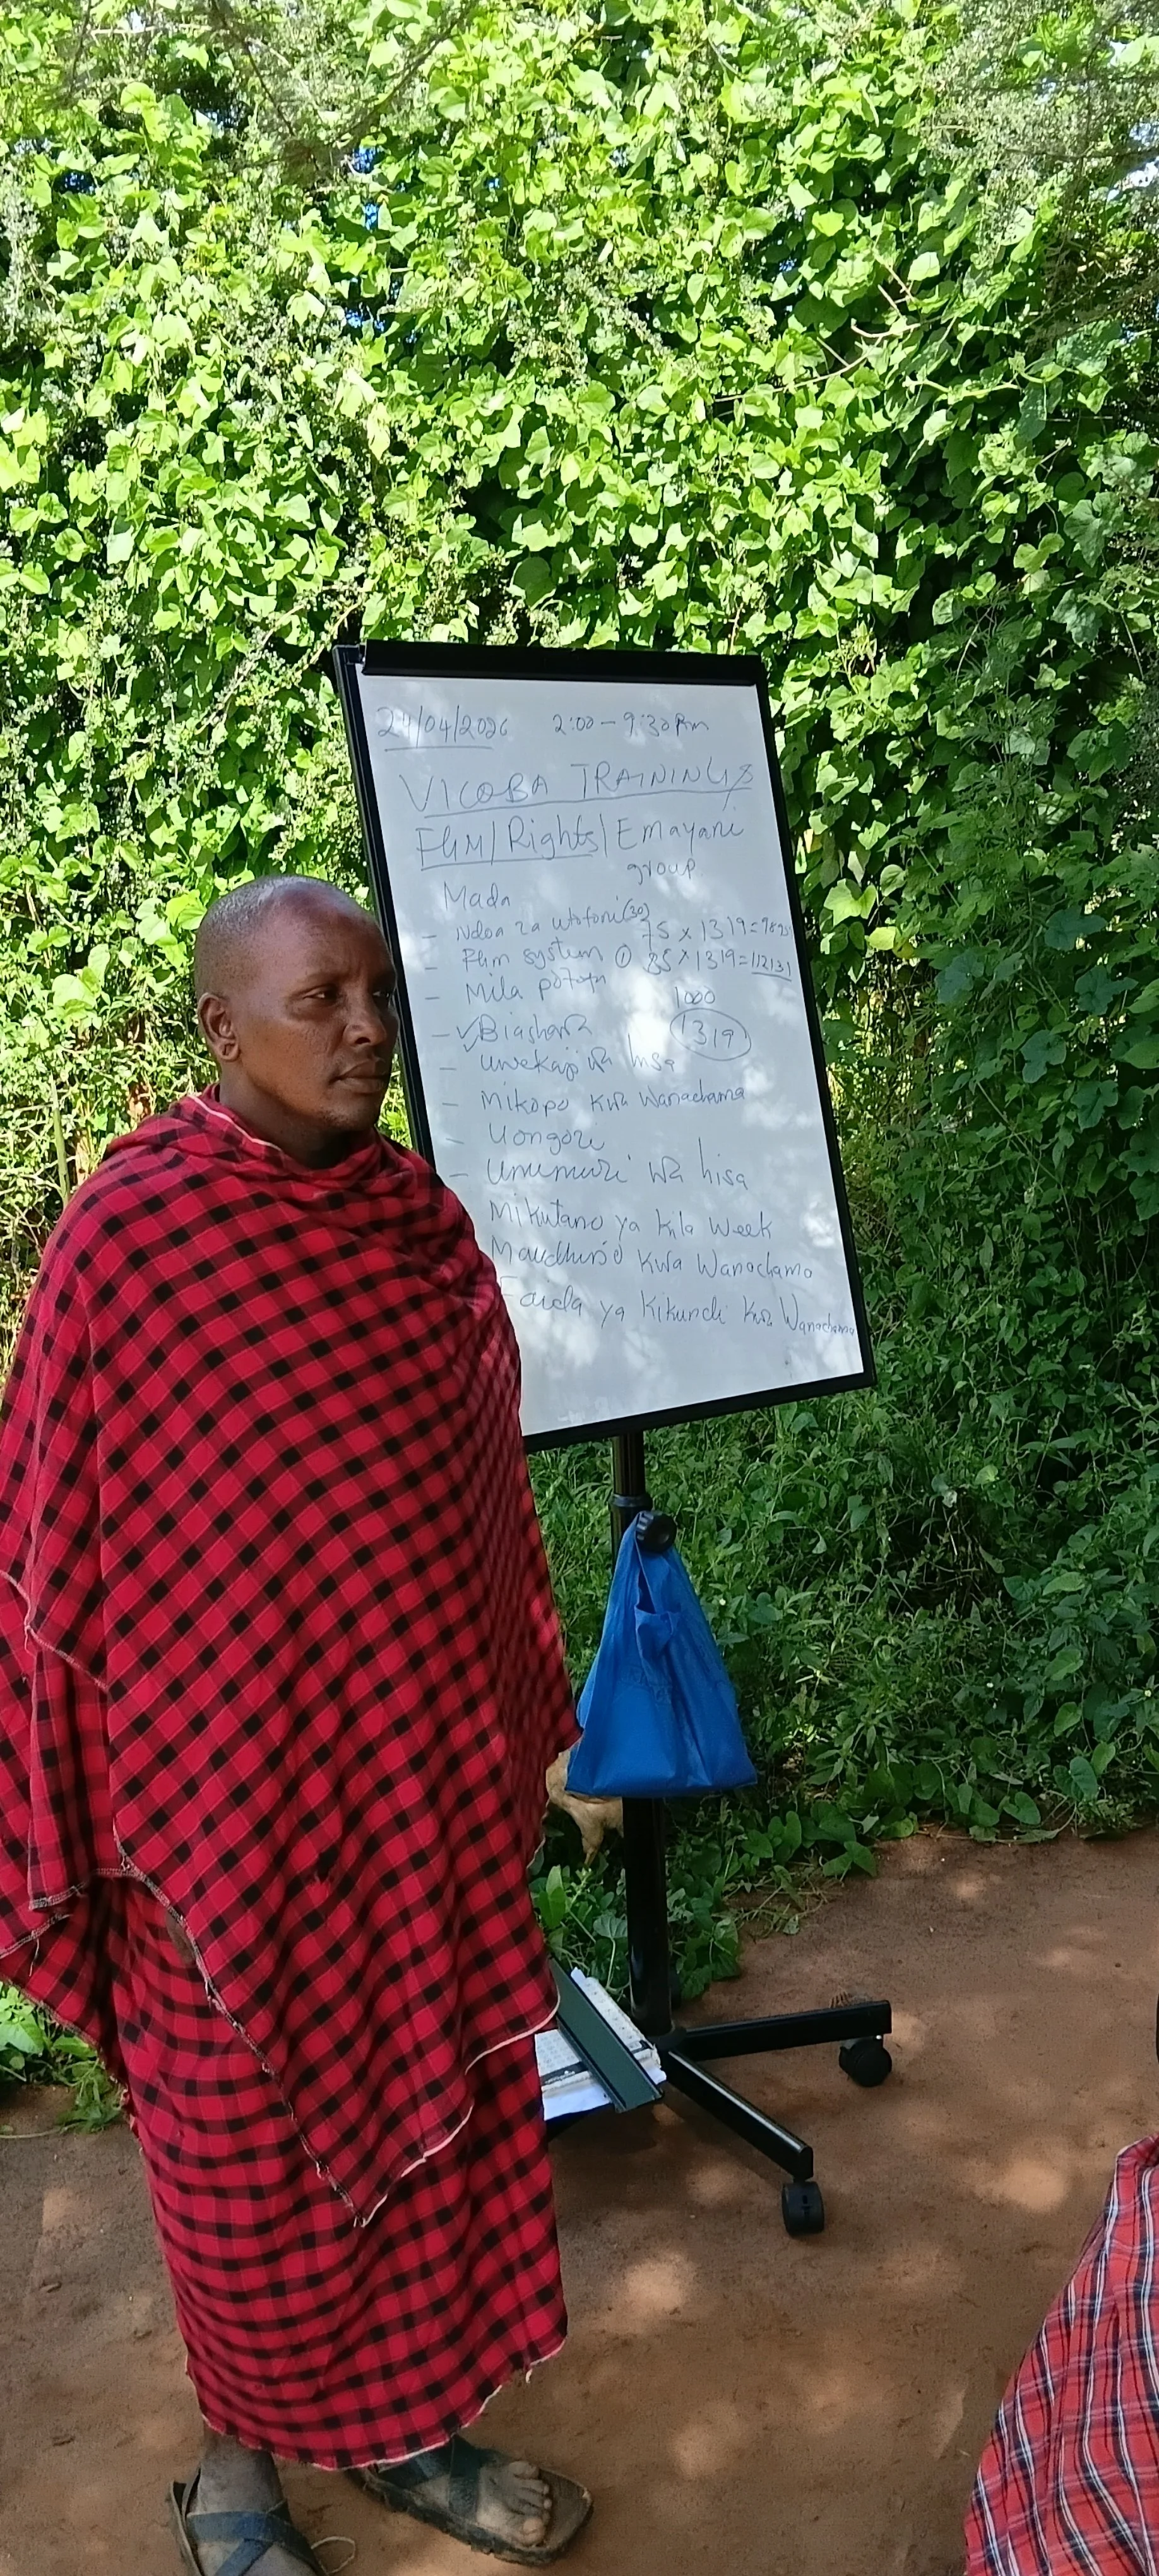 24/04/2026 2:00 - 9:30 Pm
VICOBA TRAININGS
/Rights/Emayani
group.
Mada
- Ndoa za utotoni (30) 75 x 1319 = 989
- system ① 85 x 1319 = 112131
- Mila potofu
1000
- ✓Biashara 1319
- uwekaji wa hisa
- Mikopo kwa Wanachama
- Uongozi
- Ununuzi wa hisa
Mikutano ya kila week
Kwa Wanachama
Faida ya Kikundi kwa Wanachama